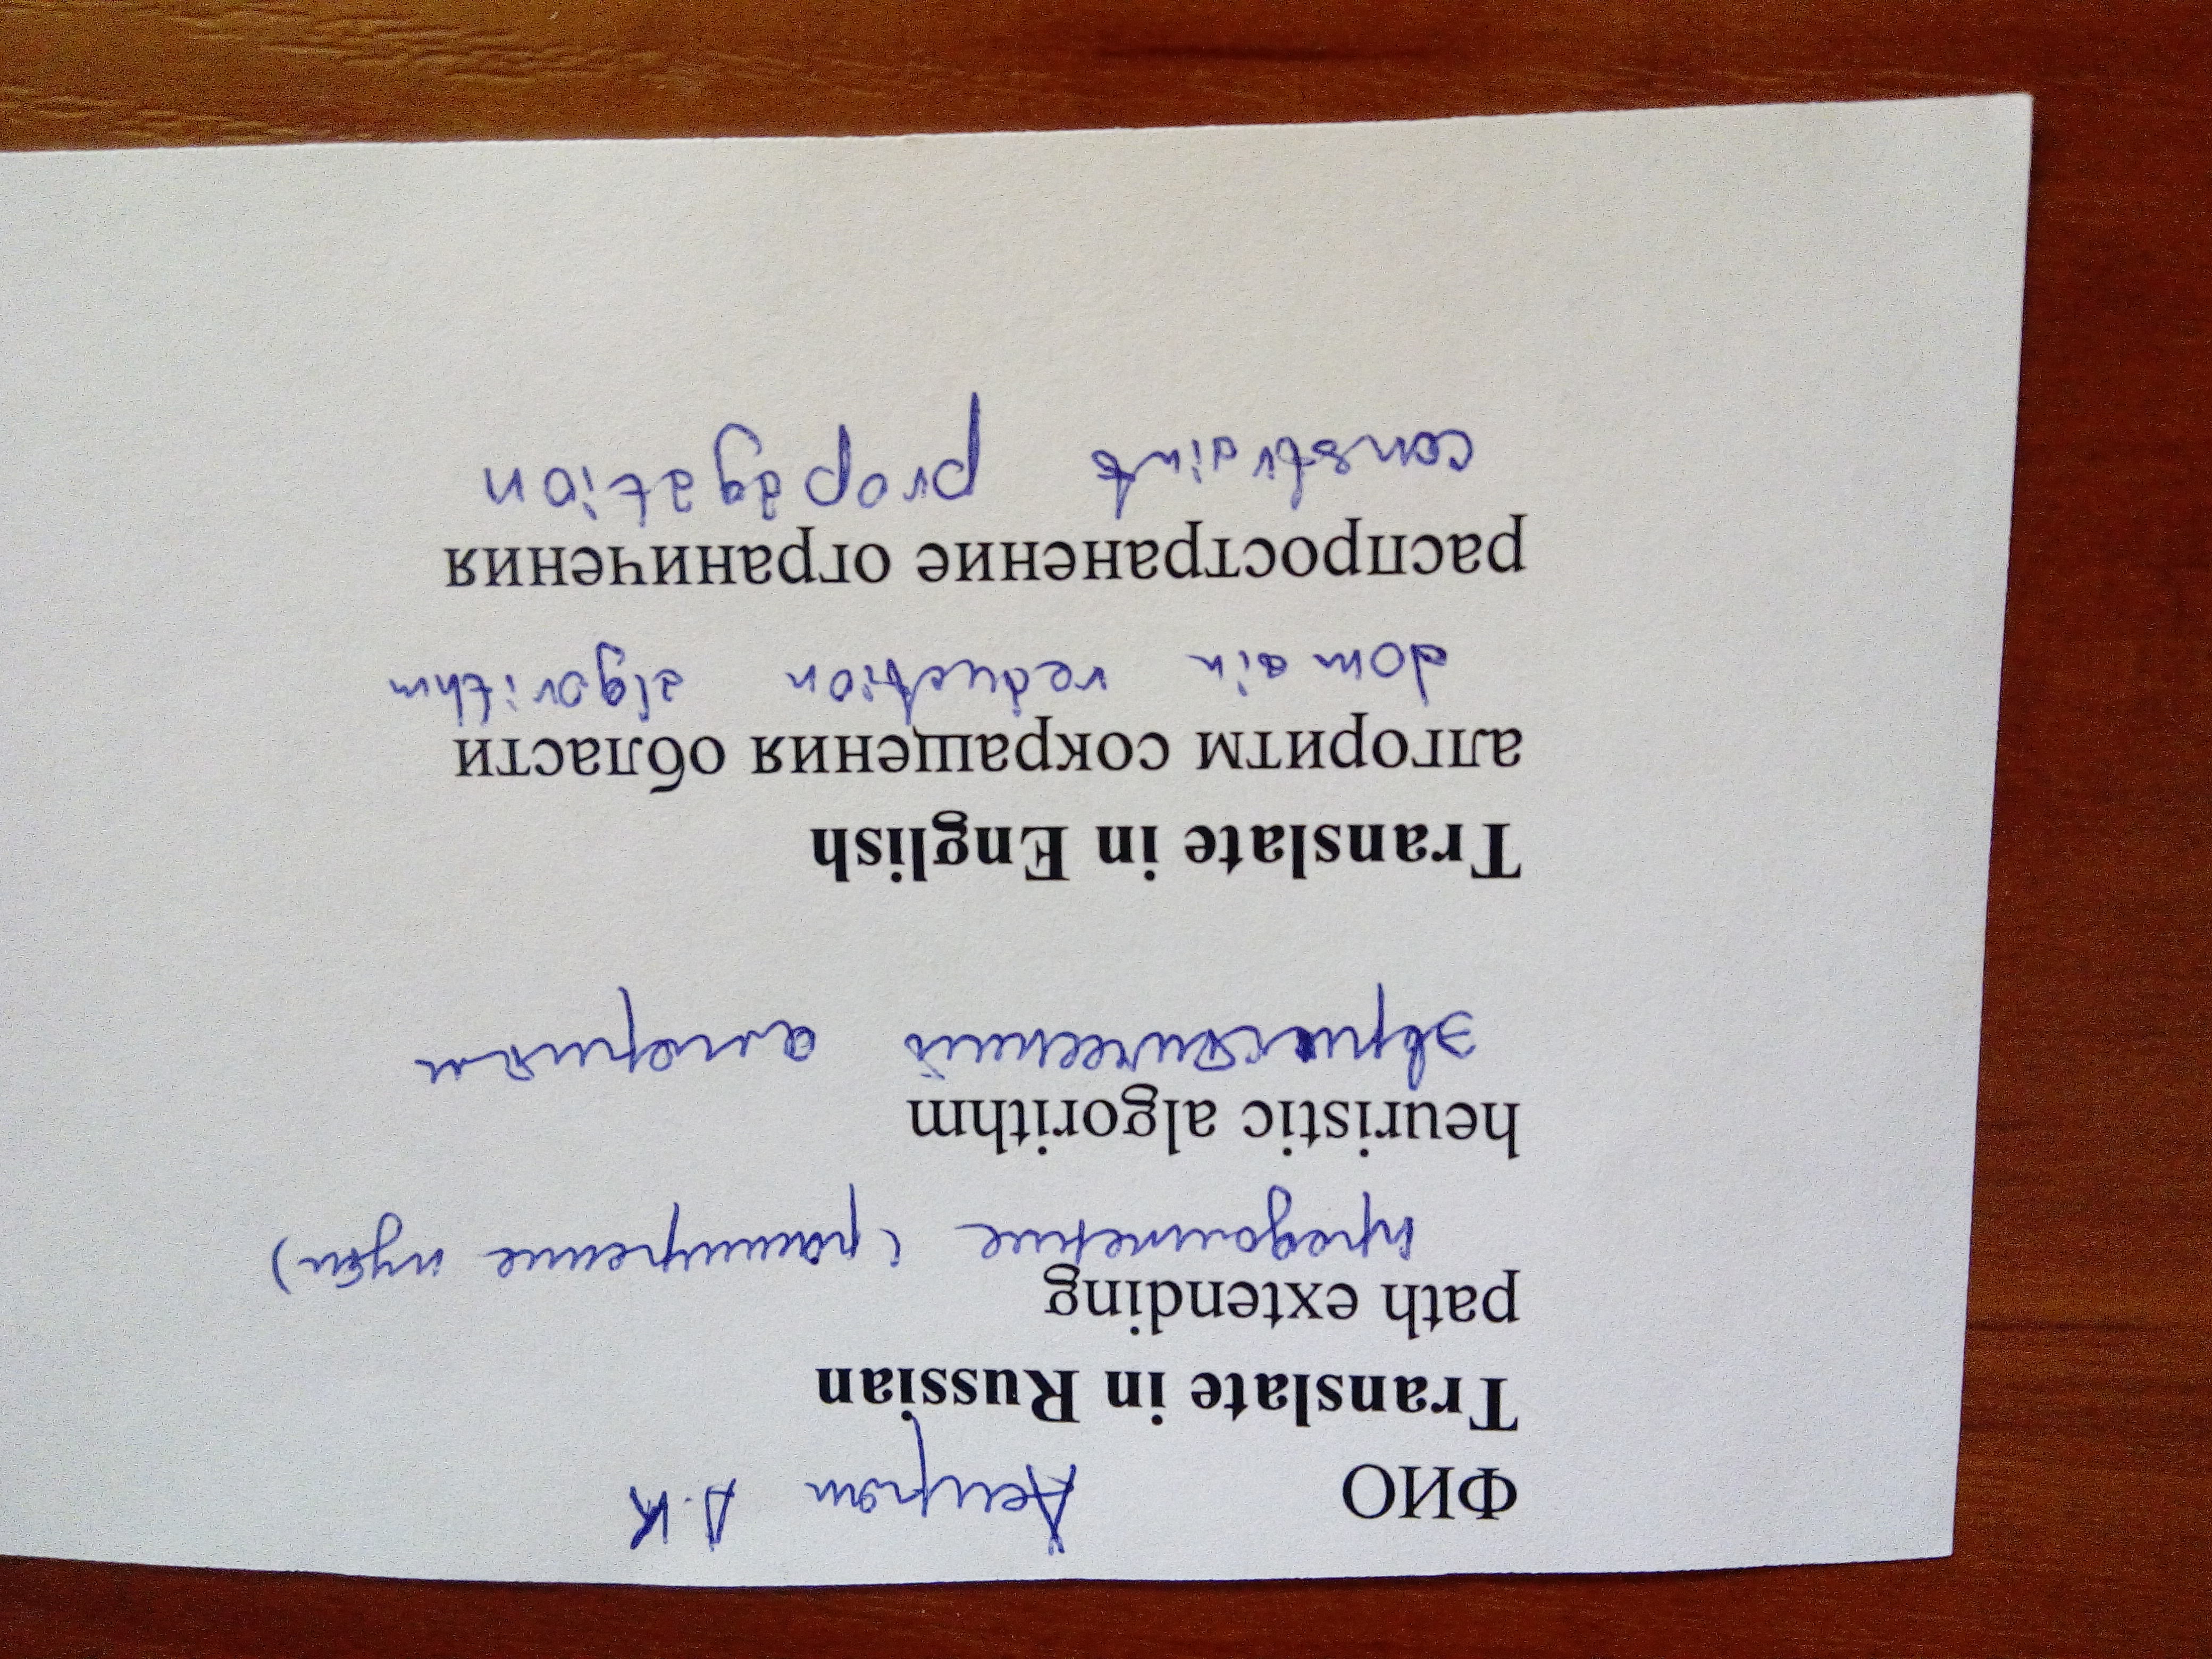 ФИО А.К
Translate in Russian
path extending
продолжение (расширение пути)
heuristic algorithm
эвристический алгоритм
Translate in English
алгоритм сокращения области
domain reduction algorithm
распространение ограничения
constraint propagation